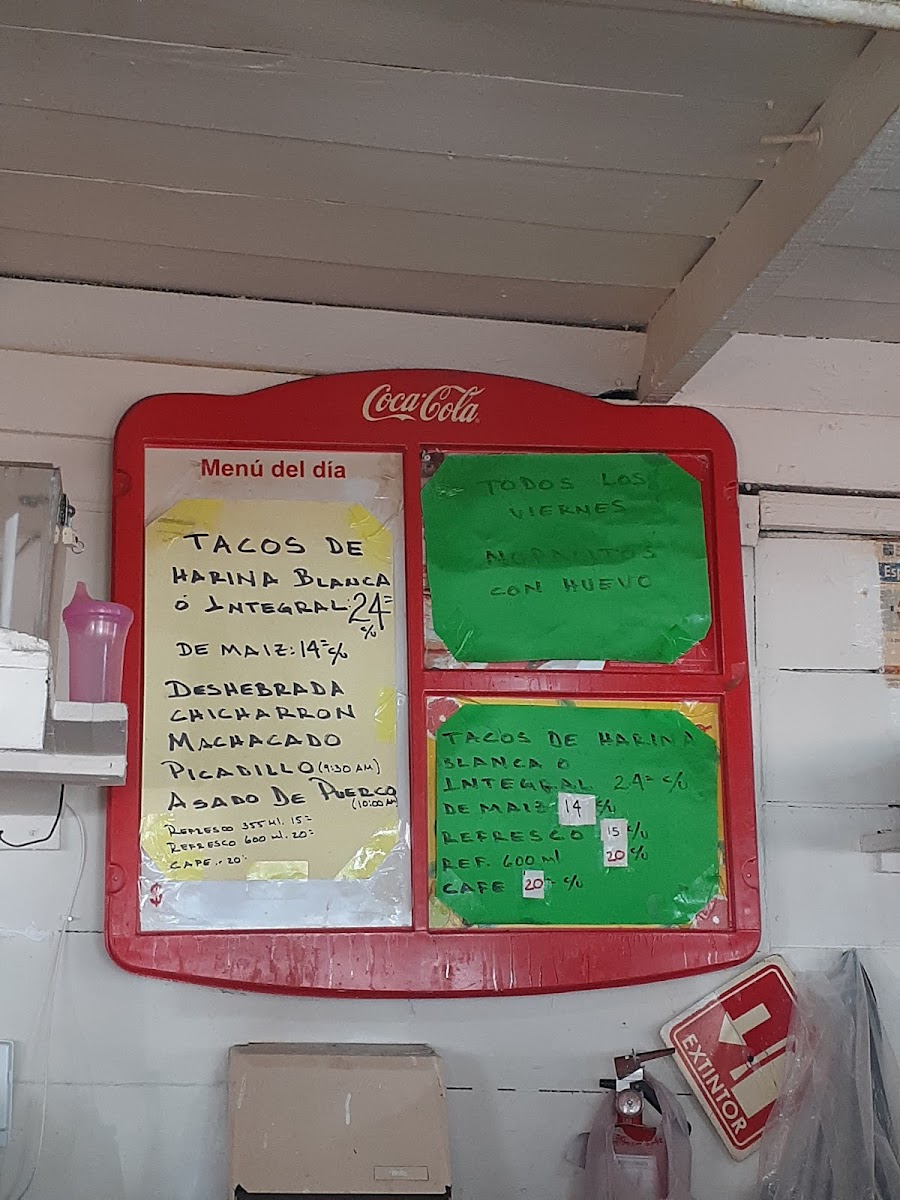 Coca-Cola
Menú del día
TACOS DE
HARINA BLANCA
Ó INTEGRAL: 24=
c/u
DE MAIZ: 14= c/u
DESHEBRADA
CHICHARRON
MACHACADO
PICADILLO (9:30 AM)
ASADO DE PUERCO
(10:00 AM)
REFRESCO 355 Ml. 15=
REFRESCO 600 Ml. 20=
CAFE.- 20=
$
TODOS LOS
VIERNES
NOPALITOS
CON HUEVO
TACOS DE HARINA
BLANCA O
INTEGRAL 24= c/u
DE MAIZ 14 c/u
REFRESCO 15 c/u
REF. 600 ml 20 c/u
CAFE 20 c/u
EXTINTOR